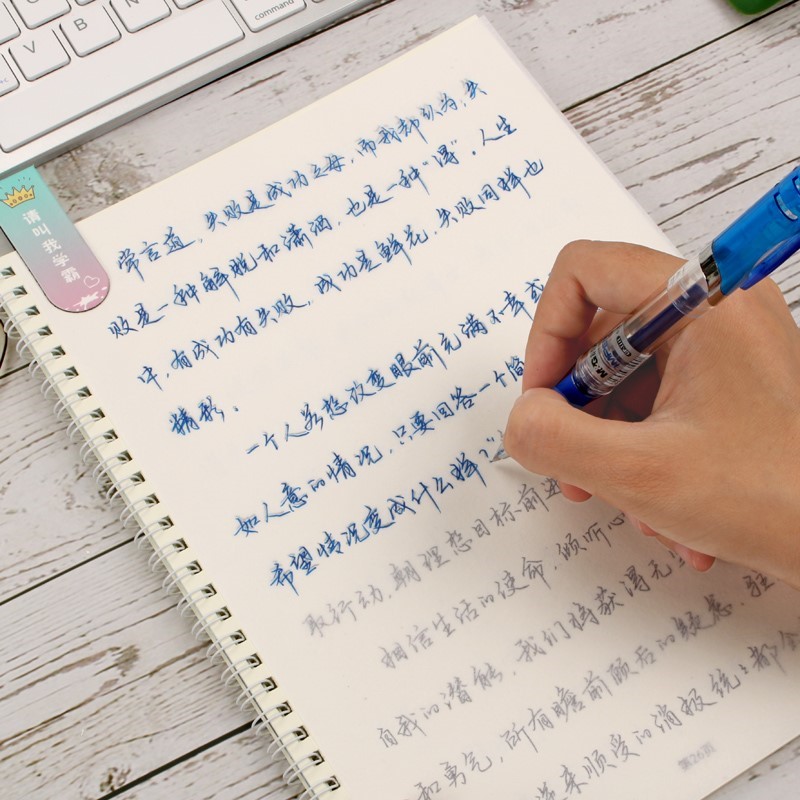 常言道，失败是成功之母，而我却认为，失
败是一种解脱和潇洒，也是一种“得”。人生
中，有成功有失败，成功是鲜花，失败同样也
精彩。
一个人若想改变眼前充满不幸或
如人意的情况，只要回答一个简
希望情况变成什么样
取行动，朝理想目标前进
相信生活的使命，倾听心
自我的潜能，我们将获得无
和勇气，所有瞻前顾后的疑惑、驻
逆来顺受的消极统统都会
第26页
请叫我学霸
M&G
command
C
V
B
N
M